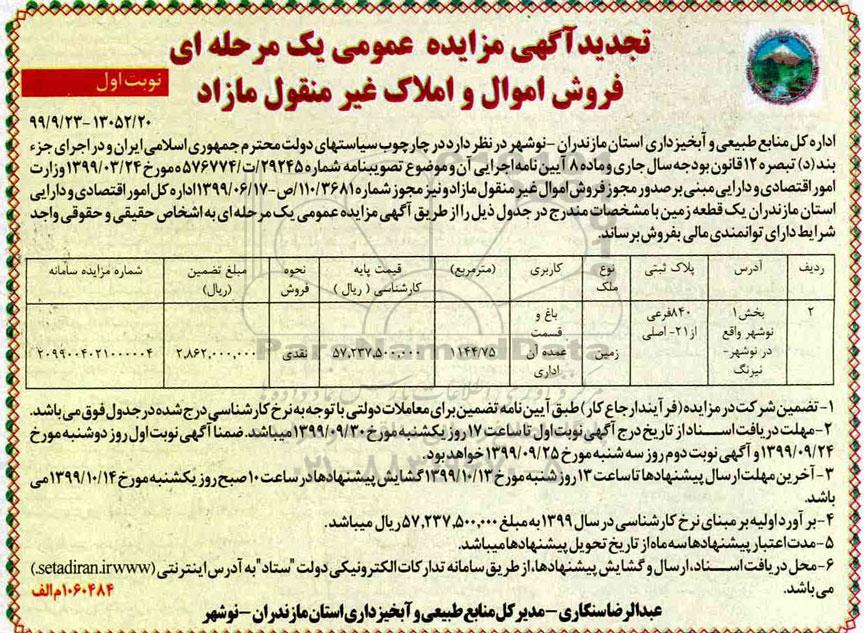 تجدید آگهی مزایده عمومی یک مرحله ای
فروش اموال و املاک غیر منقول مازاد
نوبت اول
۹۹/۹/۲۳-۱۳۰۵۲/۲۰
اداره کل منابع طبیعی و آبخیزداری استان مازندران - نوشهر در نظر دارد در چارچوب سیاستهای دولت محترم جمهوری اسلامی ایران و در اجرای جزء
بند (د) تبصره ۱۲ قانون بودجه سال جاری و ماده ۸ آیین نامه اجرایی آن و موضوع تصویبنامه شماره ۲۹۲۴۵/ت/۵۷۶۷۷۴ه مورخ ۱۳۹۹/۰۳/۲۴ وزارت
امور اقتصادی و دارایی مبنی بر صدور مجوز فروش اموال غیر منقول مازاد و نیز مجوز شماره ۱۱۰/۳۶۸۱/ص-۱۳۹۹/۰۶/۱۷ اداره کل امور اقتصادی و دارایی
استان مازندران یک قطعه زمین با مشخصات مندرج در جدول ذیل را از طریق آگهی مزایده عمومی یک مرحله ای به اشخاص حقیقی و حقوقی واجد
شرایط دارای توانمندی مالی بفروش برساند.
ردیف آدرس پلاک ثبتی نوع ملک کاربری (مترمربع) قیمت پایه کارشناسی ( ریال ) نحوه فروش مبلغ تضمین (ریال) شماره مزایده سامانه
۲ بخش۱ نوشهر واقع در نوشهر- نیرنگ ۸۴۰فرعی از ۲۱- اصلی زمین باغ و قسمت عمده آن اداری ۱۱۴۴/۷۵ ۵۷,۲۳۷,۵۰۰,۰۰۰ نقدی ۲,۸۶۲,۰۰۰,۰۰۰ ۲۰۹۹۰۰۴۰۲۱۰۰۰۰۰۴
ParsNamadData
۱- تضمین شرکت در مزایده (فرآیند ارجاع کار) طبق آیین نامه تضمین برای معاملات دولتی با توجه به نرخ کارشناسی درج شده در جدول فوق می باشد.
۲- مهلت دریافت اسناد از تاریخ درج آگهی نوبت اول تا ساعت ۱۷ روز یکشنبه مورخ ۱۳۹۹/۰۹/۳۰ میباشد. ضمناً آگهی نوبت اول روز دوشنبه مورخ
۱۳۹۹/۰۹/۲۴ و آگهی نوبت دوم روز سه شنبه مورخ ۱۳۹۹/۰۹/۲۵ خواهد بود.
۳- آخرین مهلت ارسال پیشنهادها تا ساعت ۱۳ روز شنبه مورخ ۱۳۹۹/۱۰/۱۳ گشایش پیشنهادها در ساعت ۱۰ صبح روز یکشنبه مورخ ۱۳۹۹/۱۰/۱۴ می
باشد.
۴- برآورد اولیه بر مبنای نرخ کارشناسی در سال ۱۳۹۹ به مبلغ ۵۷,۲۳۷,۵۰۰,۰۰۰ ریال میباشد.
۵- مدت اعتبار پیشنهادها سه ماه از تاریخ تحویل پیشنهادها میباشد.
۶- محل دریافت اسناد، ارسال و گشایش پیشنهادها، از طریق سامانه تدارکات الکترونیکی دولت "ستاد" به آدرس اینترنتی (setadiran.irwww.)
می باشد.
۱۰۶۰۴۸۴م الف
عبدالرضا سنگاری - مدیر کل منابع طبیعی و آبخیزداری استان مازندران - نوشهر